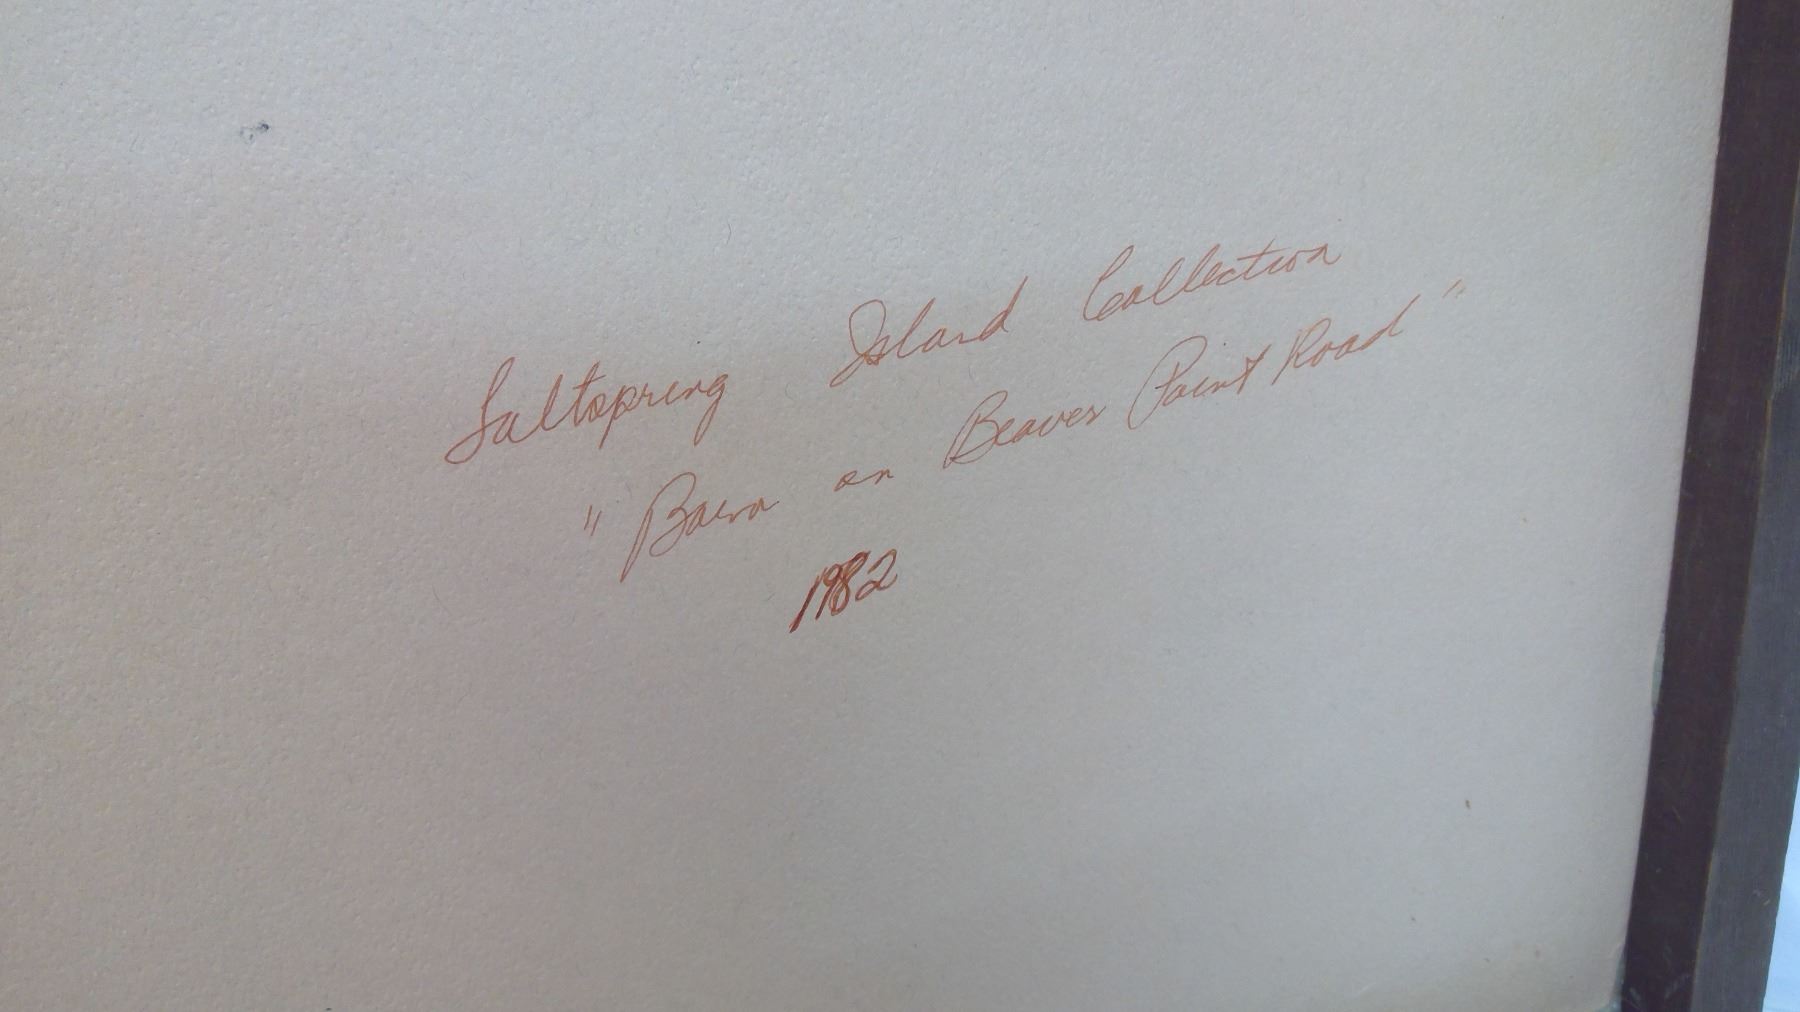 Saltspring Island Collection
"Barn on Beaver Point Road"
1982